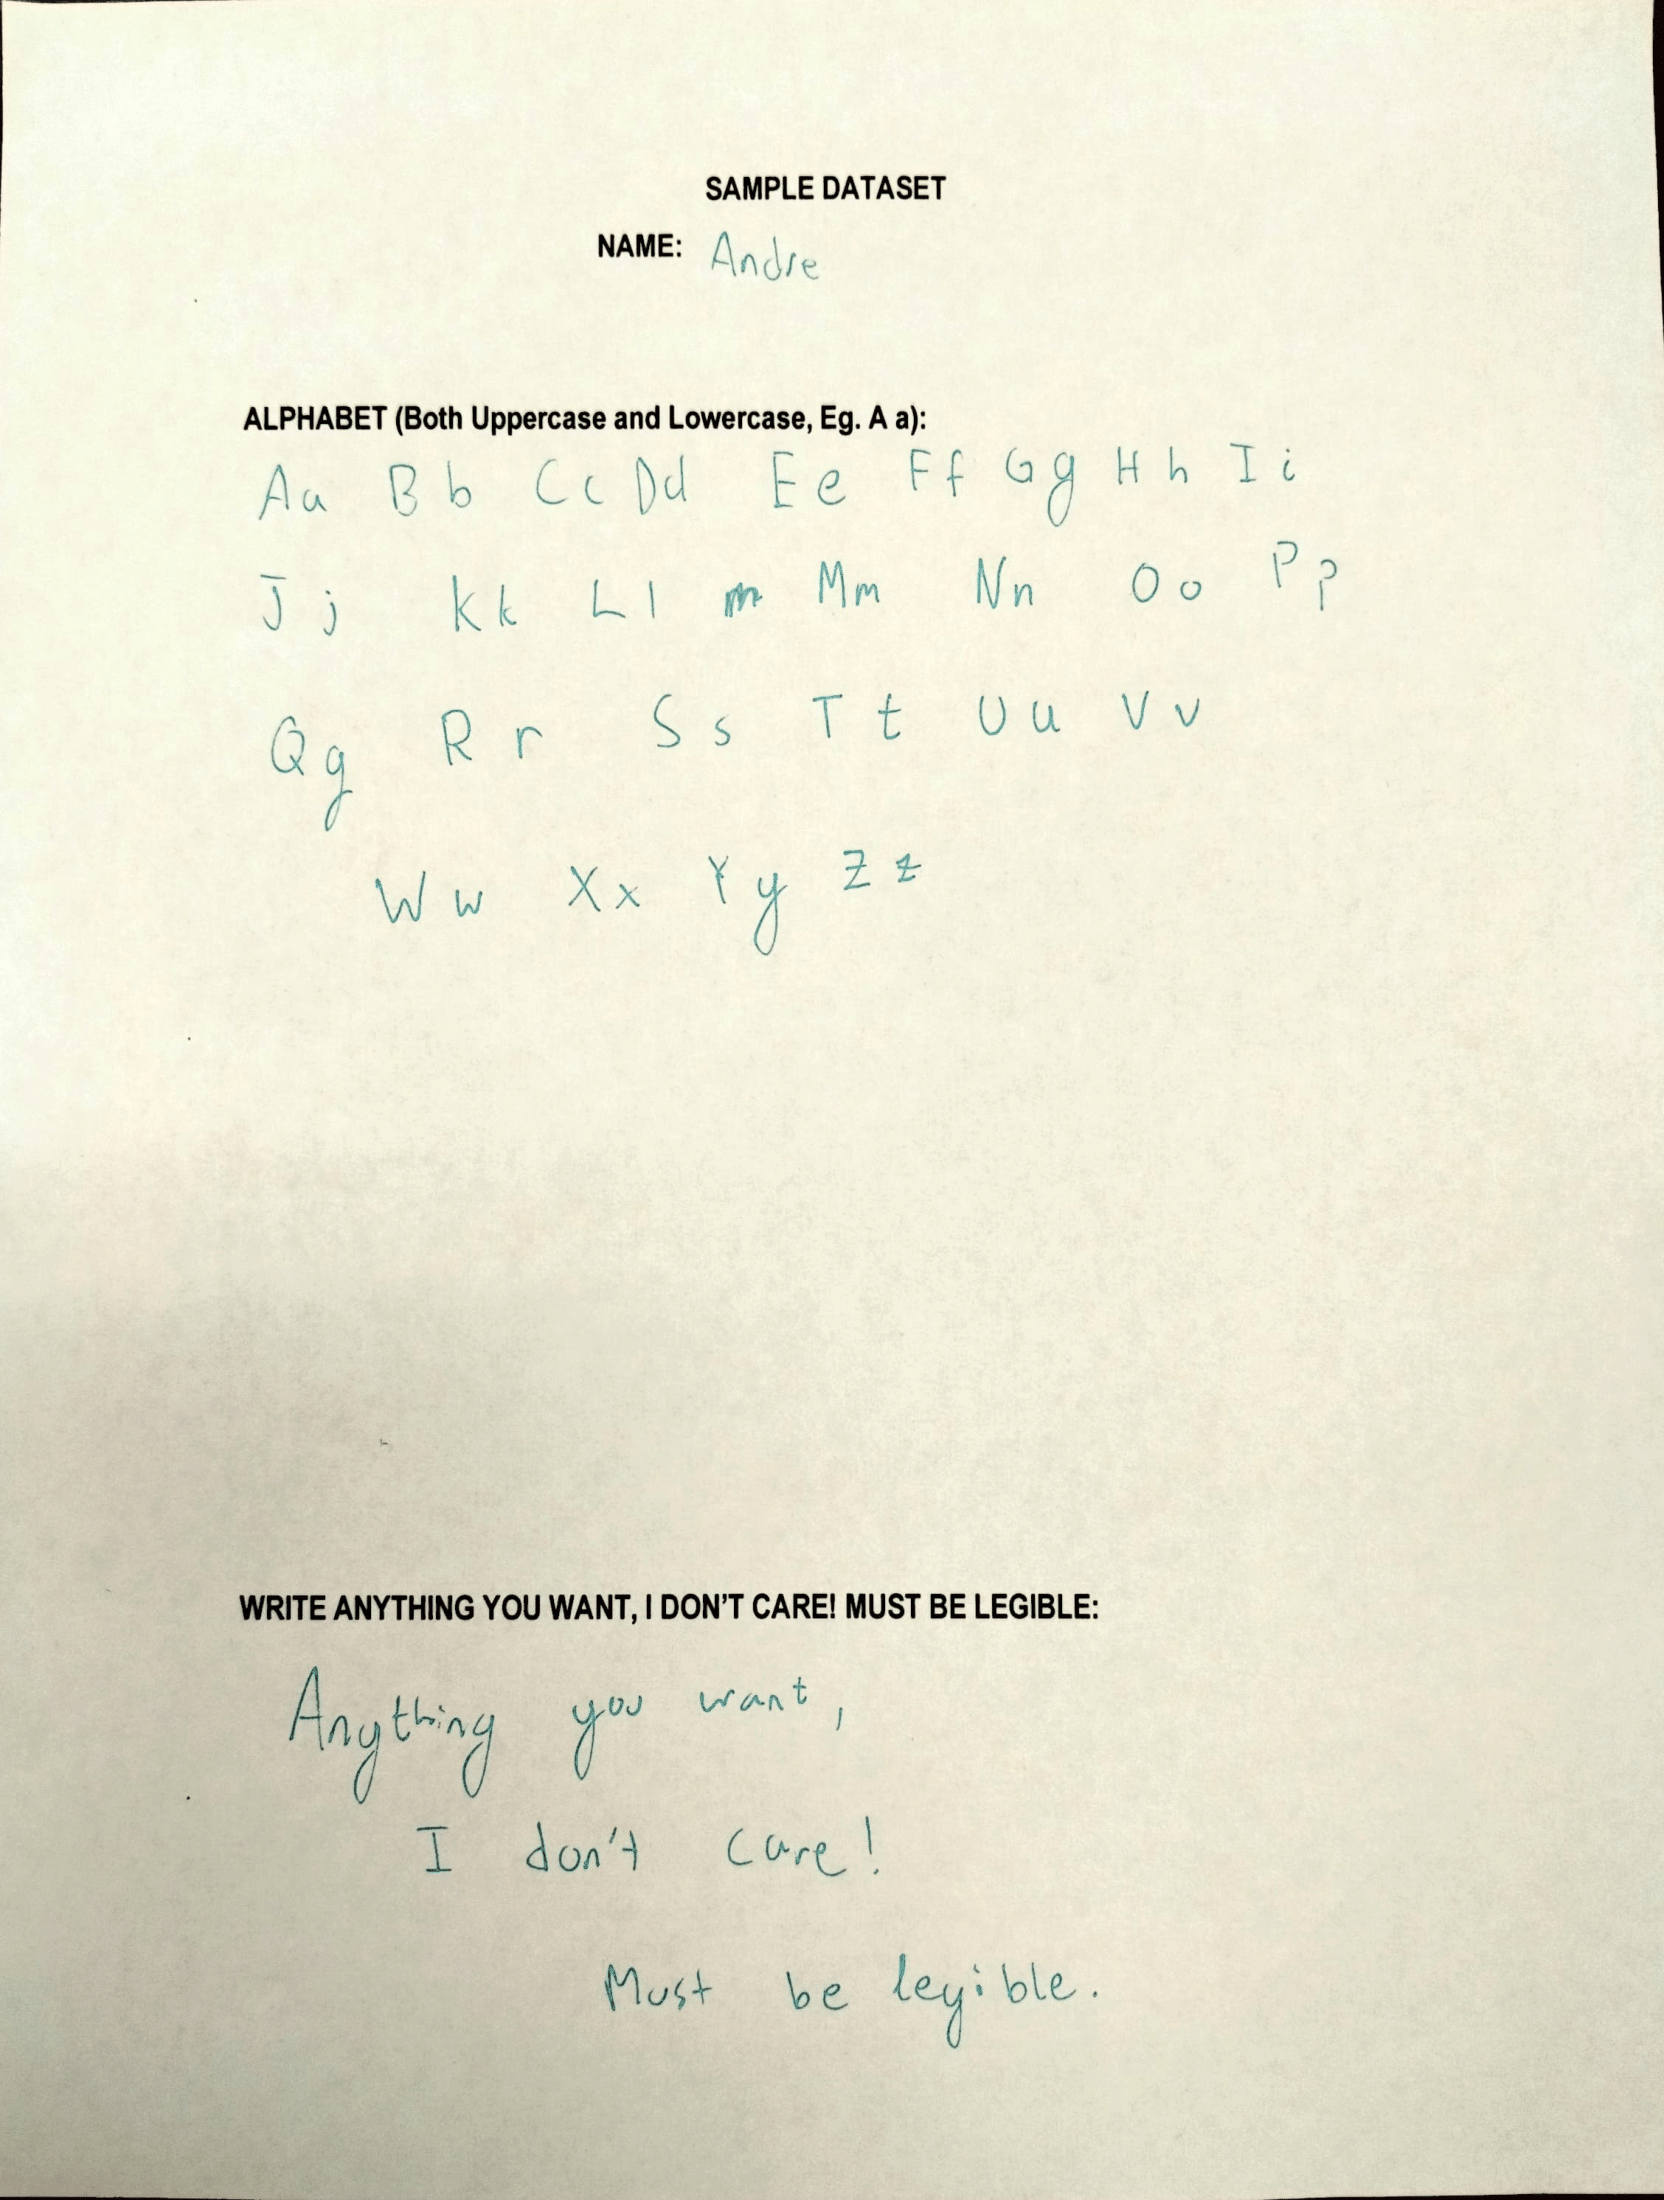 SAMPLE DATASET
NAME: Andre
ALPHABET (Both Uppercase and Lowercase, Eg. A a):
Aa Bb Cc Dd Ee Ff Gg Hh Ii
Jj Kk Ll Mm Nn Oo Pp
Qq Rr Ss Tt Uu Vv
Ww Xx Yy Zz
WRITE ANYTHING YOU WANT, I DON'T CARE! MUST BE LEGIBLE:
Anything you want,
I don't care!
Must be legible.